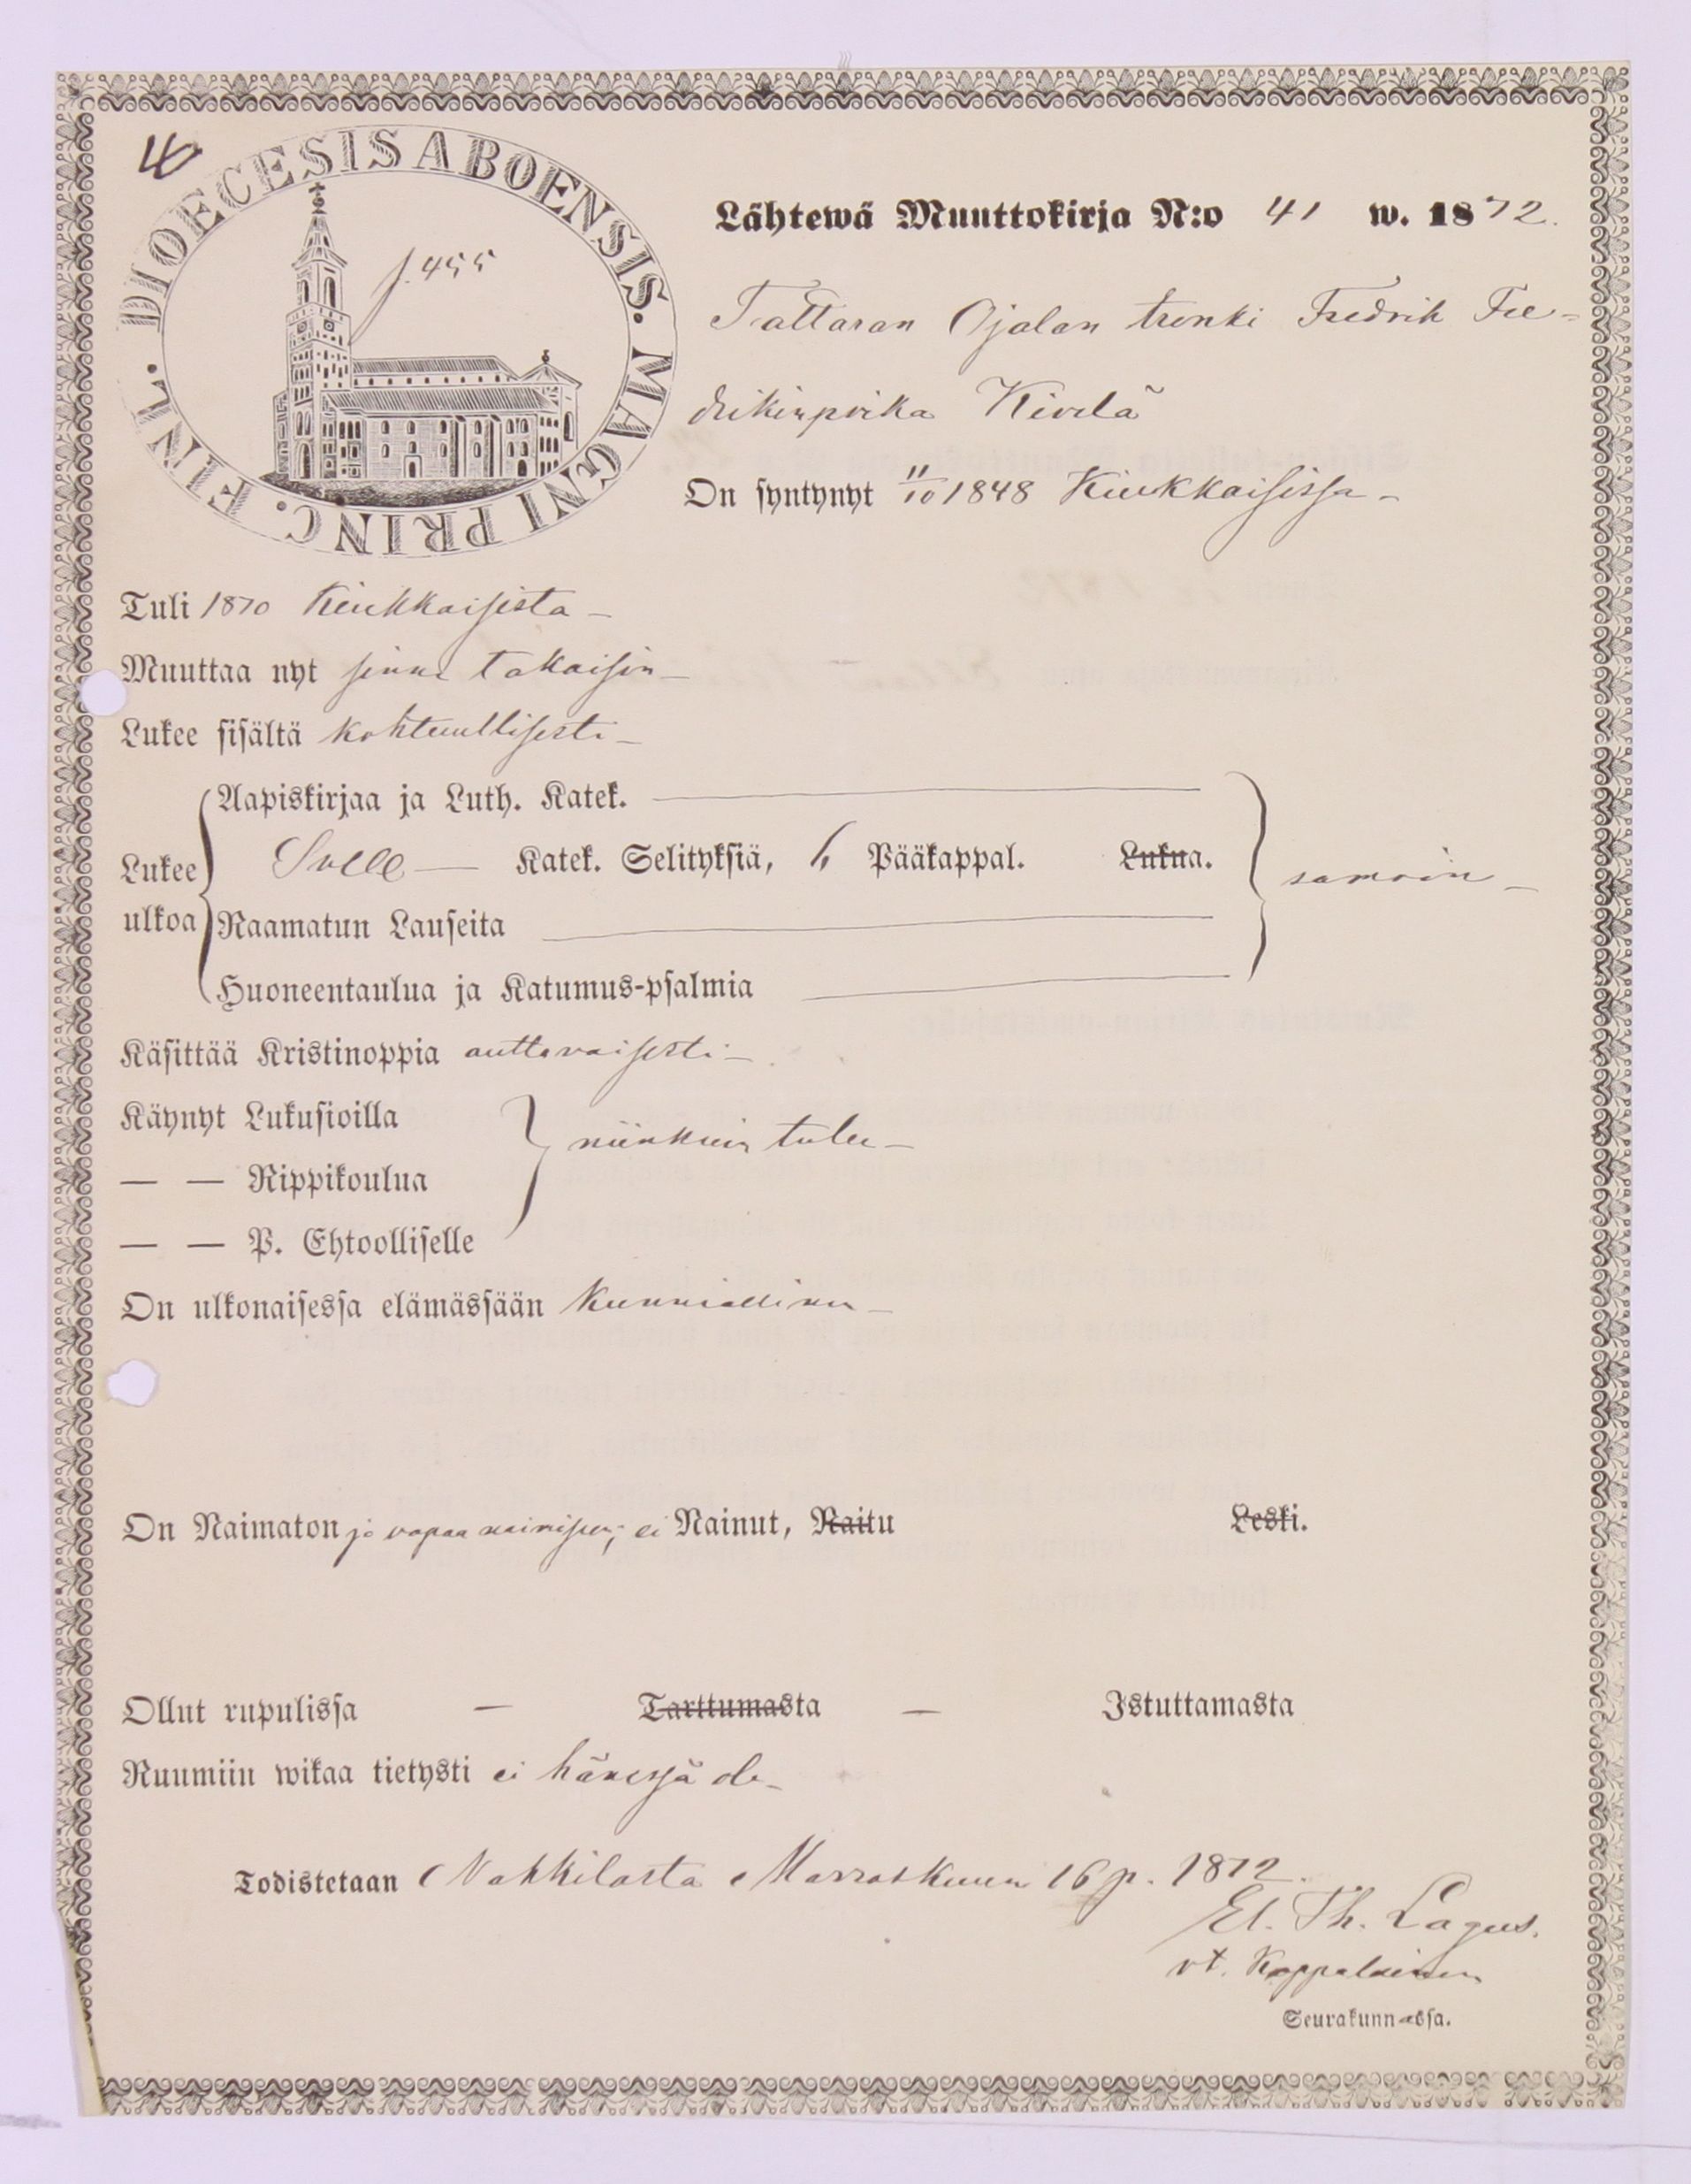 DIOECESIS ABOENSIS. MAGNI PRINC. FINL.
f. 455
Lähtewä Muuttokirja N:o 41 w. 1872.
Tattaran Ojalan trenki Fredrik Fre-
drikinpoika Kivelä
On syntynyt 11/10 1848 Kiukkaisissa -
Tuli 1870 Kiukkaisista -
Muuttaa nyt sinne takaisin -
Lukee sisältä kohtuullisesti -
Aapiskirjaa ja Luth. Katek.
Lukee ulkoa
Katek. Selityksiä, 6 Pääkappal. Lukua.
samoin -
Raamatun Lauseita
Huoneentaulua ja Katumus-psalmia
Käsittää Kristinoppia auttavaisesti -
Käynyt Lukusioilla
niinkuin tulee -
— — Rippikoulua
— — P. Ehtoolliselle
On ulkonaisessa elämässään kunniallinen -
On Naimaton ja vapaa naimisen; ei Nainut, Naitu Leski.
Ollut rupulissa — Tarttumasta — Istuttamasta
Ruumiin wikaa tietysti ei hänessä ole -
Todistetaan Nakkilasta Marraskuun 16 p. 1872.
El. Th. Lagus.
vt. Kappalainen
Seurakunnassa.